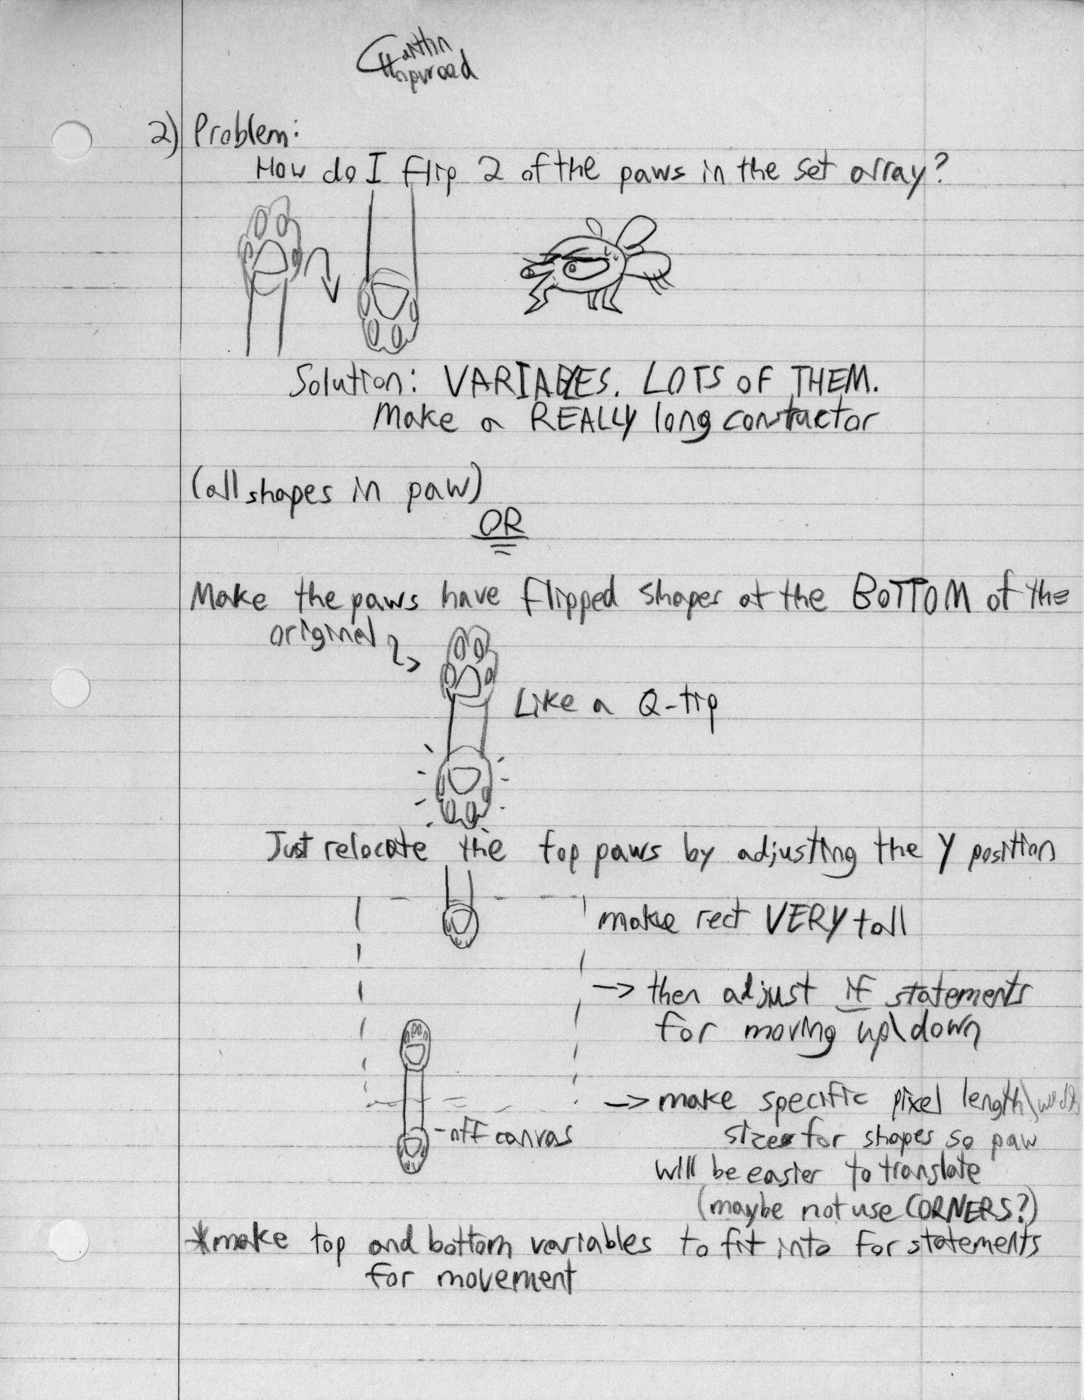 2) Problem:
How do I flip 2 of the paws in the set array?
Solution: VARIABLES. LOTS OF THEM.
Make a REALLY long constructor
(all shapes in paw)
OR
Make the paws have flipped shapes at the BOTTOM of the
original
Like a Q-tip
Just relocate the top paws by adjusting the Y position
make rect VERY tall
-> then adjust if statements
for moving up\down
-> make specific pixel length\width
sizes for shapes so paw
will be easier to translate
(maybe not use CORNERS?)
-off canvas
*make top and bottom variables to fit into for statements
for movement